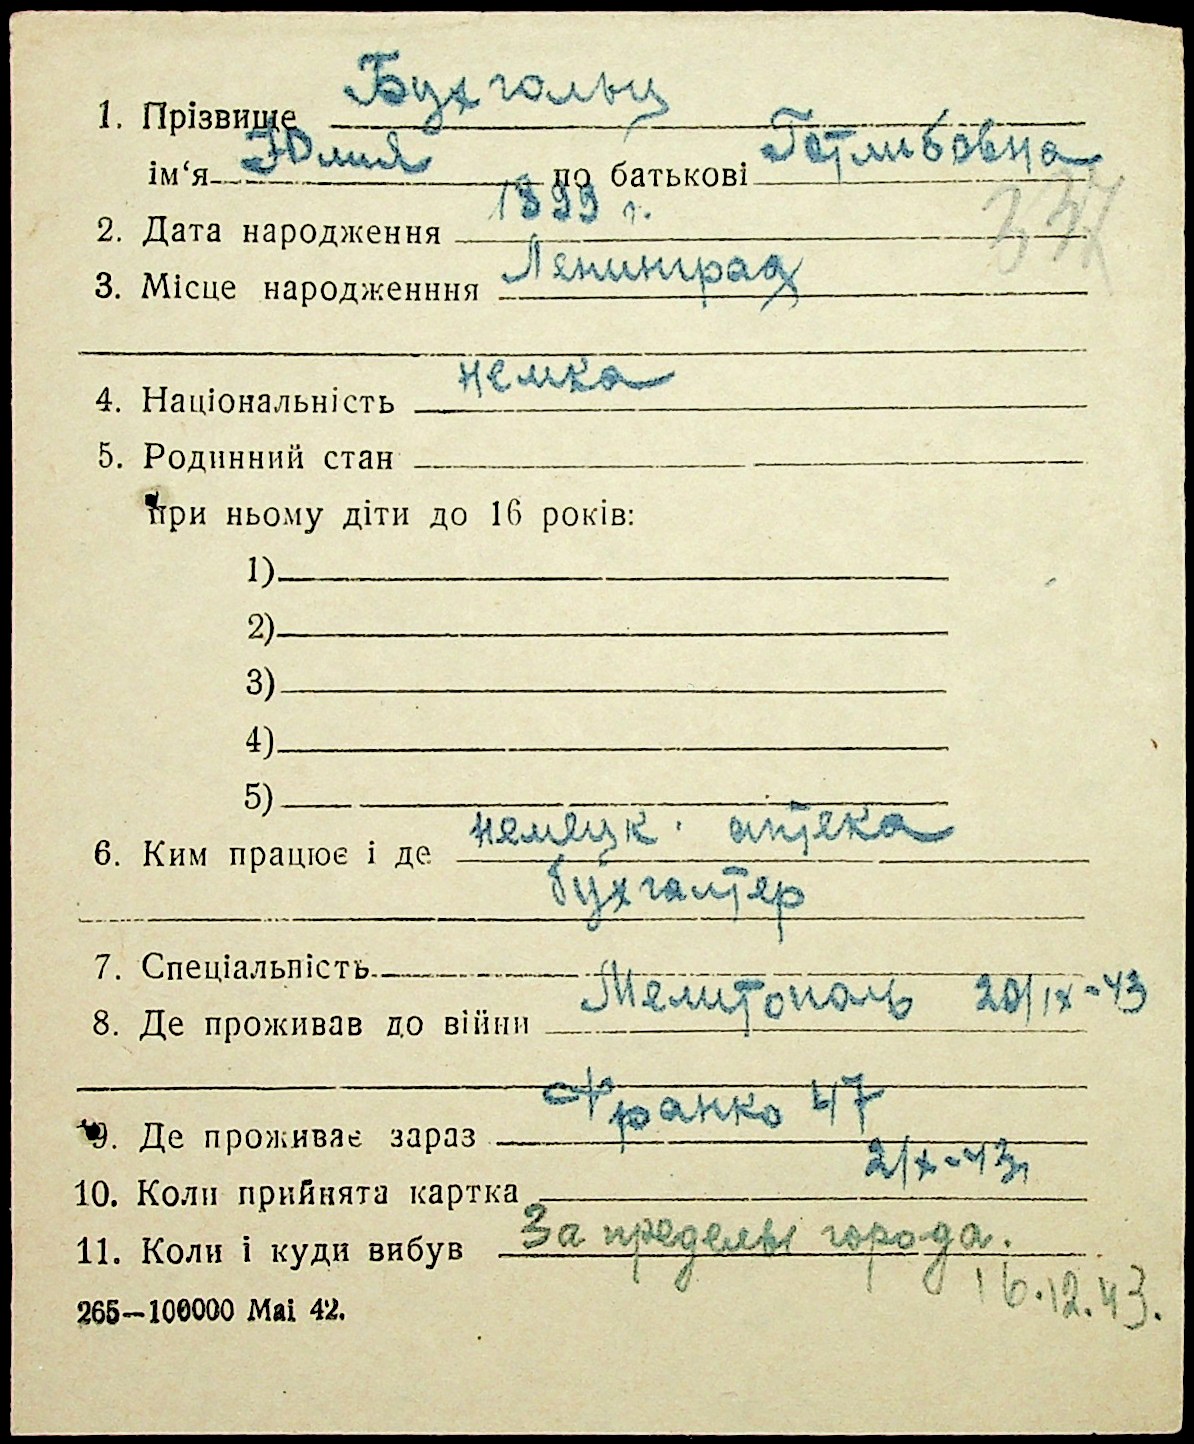 Бухгольц
1. Прізвище
Юлия Готлибовна
ім‘я по батькові
1899 г.
337
2. Дата народження
Ленинград
3. Місце народженння
немка
4. Національність
5. Родинний стан
при ньому діти до 16 років:
1)
2)
3)
4)
5)
немецк. аптека
6. Ким працює і де
бухгалтер
7. Спеціальність
Мелитополь 20/IX-43
8. Де проживав до війни
Франко 47
9. Де проживає зараз
2/X-43
10. Коли прийнята картка
За пределы города.
11. Коли і куди вибув
16.12.43.
265—100000 Mai 42.